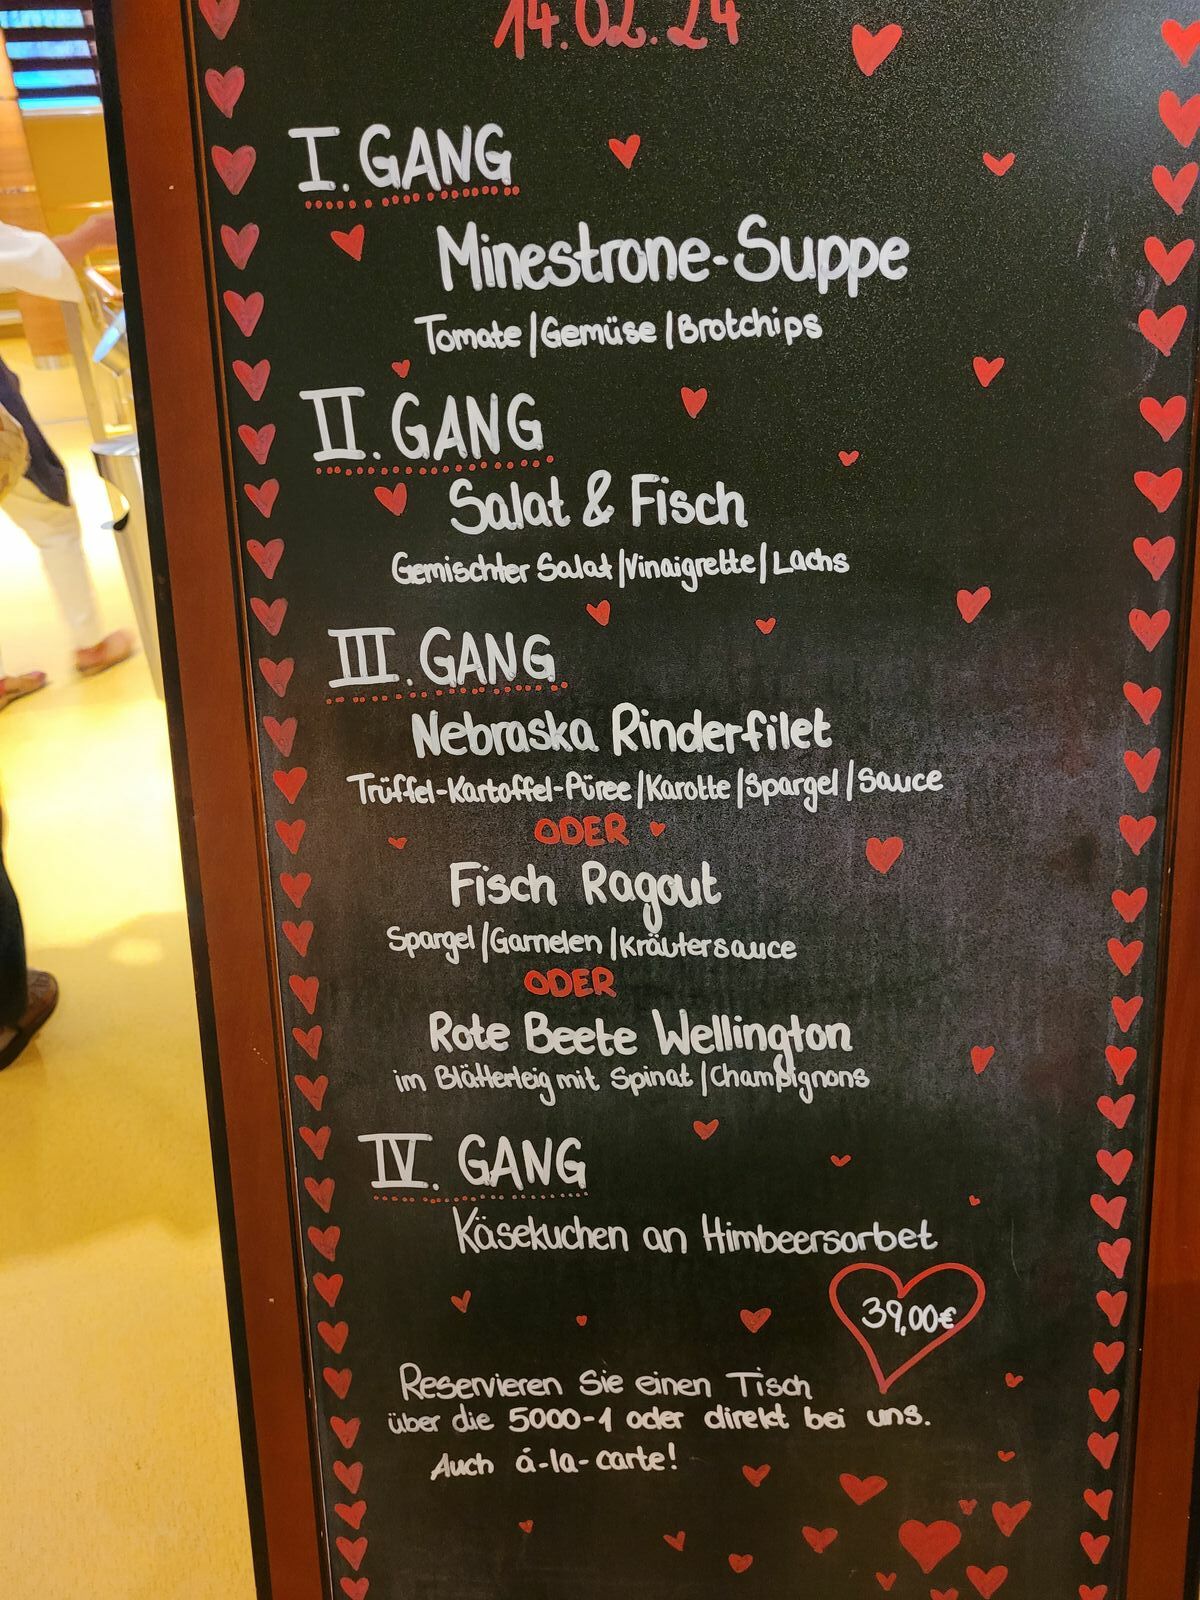 14.02.24
I. GANG
Minestrone-Suppe
Tomate/Gemüse/Brotchips
II. GANG
Salat & Fisch
Gemischter Salat/Vinaigrette/Lachs
III. GANG
Nebraska Rinderfilet
Trüffel-Kartoffel-Püree/Karotte/Spargel/Sauce
ODER
Fisch Ragout
Spargel/Garnelen/Kräutersauce
ODER
Rote Beete Wellington
im Blätterteig mit Spinat/Champignons
IV. GANG
Käsekuchen an Himbeersorbet
39,00€
Reservieren Sie einen Tisch
über die 5000-1 oder direkt bei uns.
Auch á-la-carte!